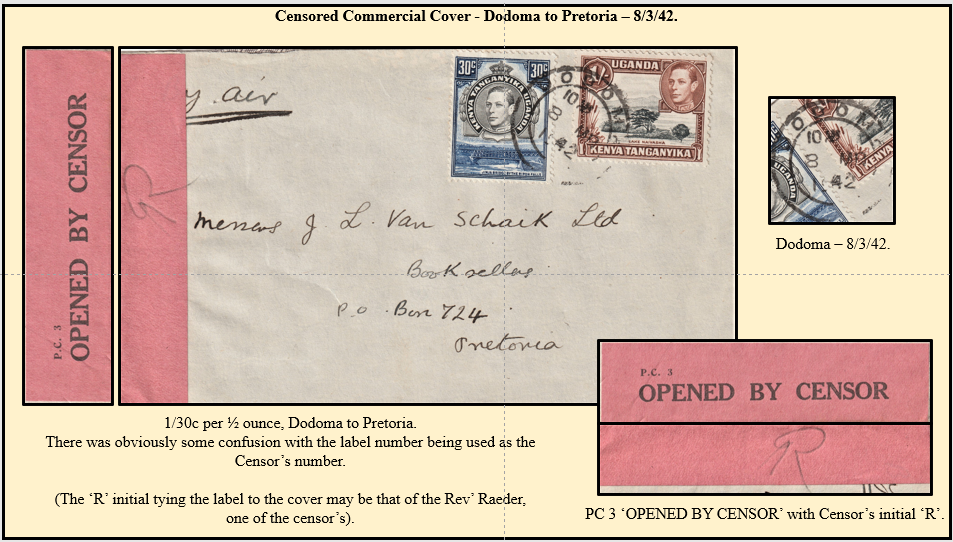 Censored Commercial Cover - Dodoma to Pretoria – 8/3/42.
P.C. 3
OPENED BY CENSOR
R
y air
30c
30c
KENYA TANGANYIKA UGANDA
1/-
UGANDA
LAKE NAIVASHA
KENYA TANGANYIKA
DODOMA
10
8
42
Messrs J. L. Van Schaik Ltd
Booksellers
P.O. Box 724
Pretoria
10
8
42
UGANDA
KENYA
Dodoma – 8/3/42.
P.C. 3
OPENED BY CENSOR
R
1/30c per ½ ounce, Dodoma to Pretoria.
There was obviously some confusion with the label number being used as the
Censor’s number.
(The ‘R’ initial tying the label to the cover may be that of the Rev’ Raeder,
one of the censor’s).
PC 3 ‘OPENED BY CENSOR’ with Censor’s initial ‘R’.